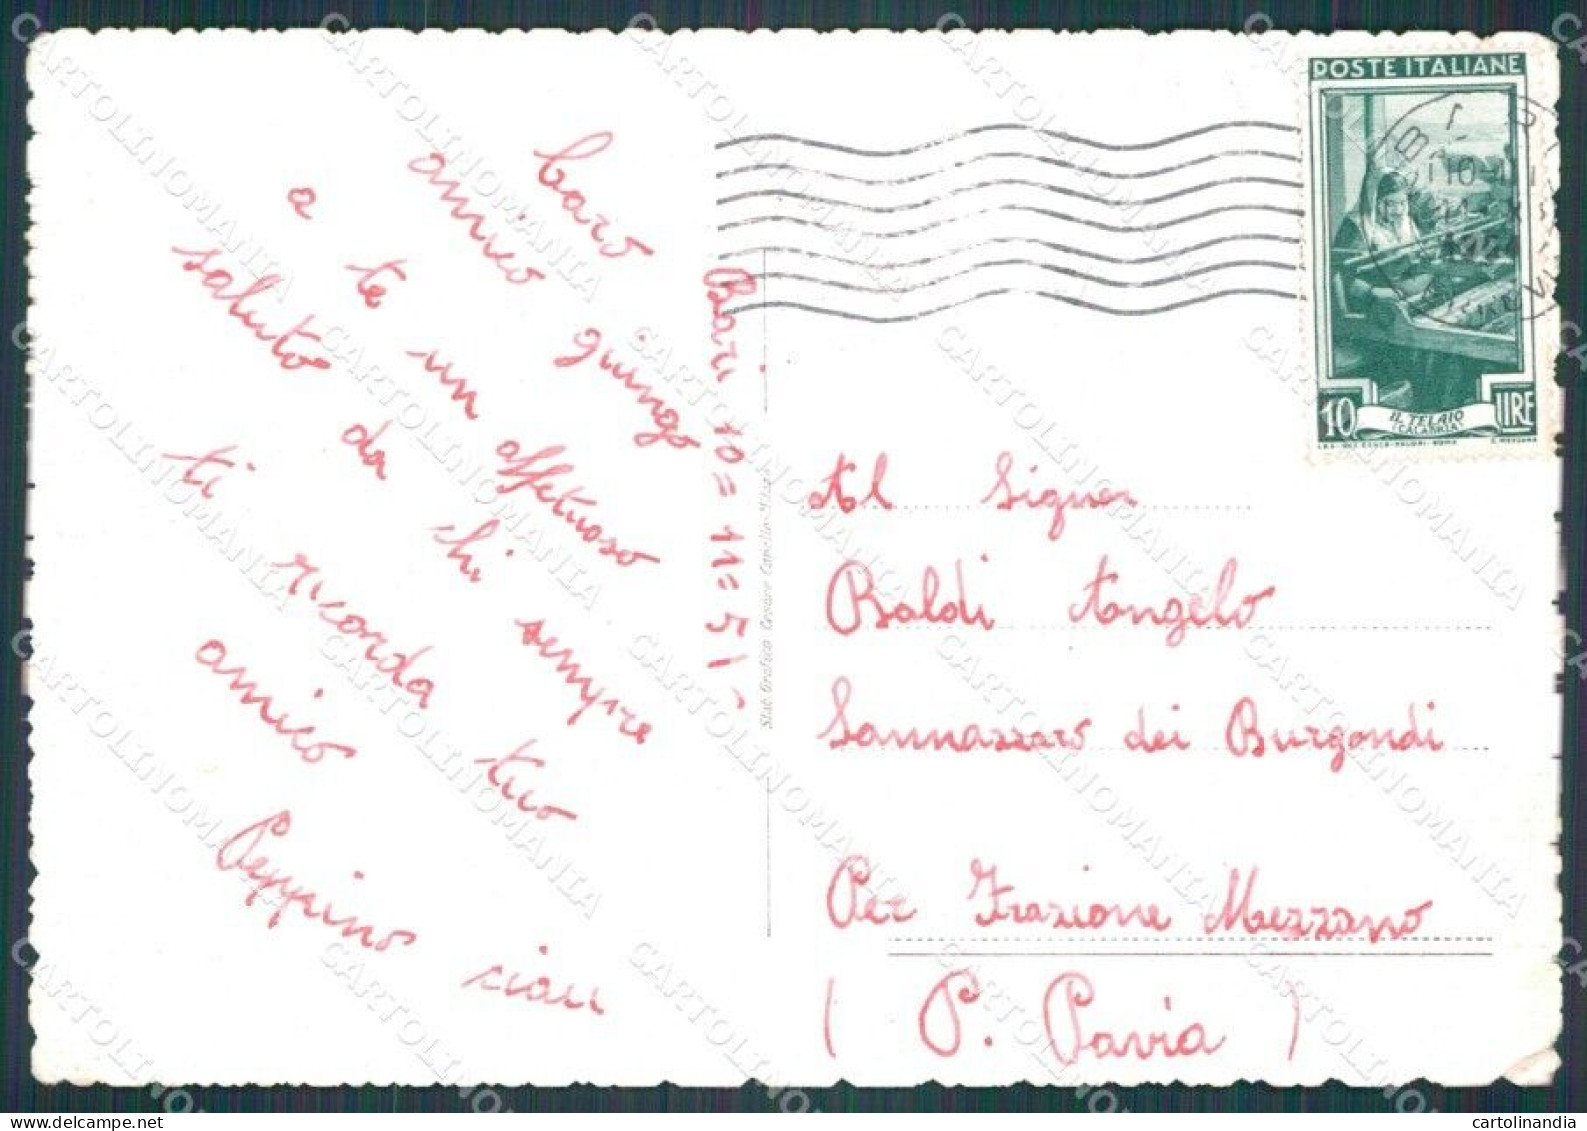 Bari 10=11=51
Caro
amico giungo
a te un affettuoso
saluto da chi sempre
ti ricorda tuo
amico
Peppino ciau
POSTE ITALIANE
10 LIRE
IL TELAIO
(CALABRIA)
Al Signor
Baldi Angelo
Sannazzaro dei Burgondi
Per Frazione Mezzano
(P. Pavia)
CARTOLINOMANIA
cartolinandia